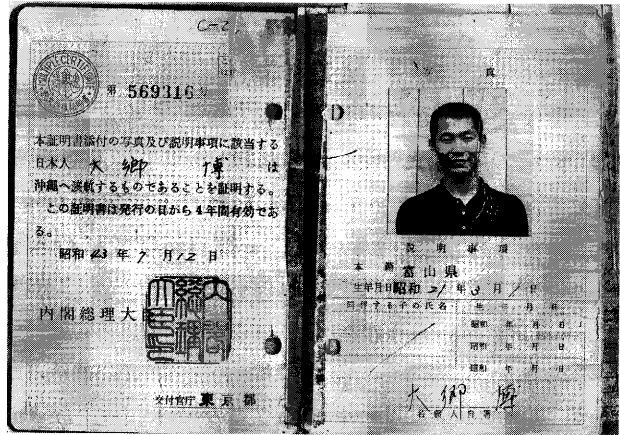 C-2
第 569316 号
本証明書添付の写真及び説明事項に該当する
日本人 大郷 博 は
沖縄へ渡航するものであることを証明する。
この証明書は発行の日から4年間有効であ
る。
昭和 43 年 9 月 12 日
内閣総理大臣
交付官庁 東京都
写 真
説明事項
本籍 富山県
生年月日 昭和 21 年 3 月 1 日
同伴する子の氏名 生 年 月 日
昭和 年 月 日
昭和 年 月 日
昭和 年 月 日
大郷 博
名義人自署